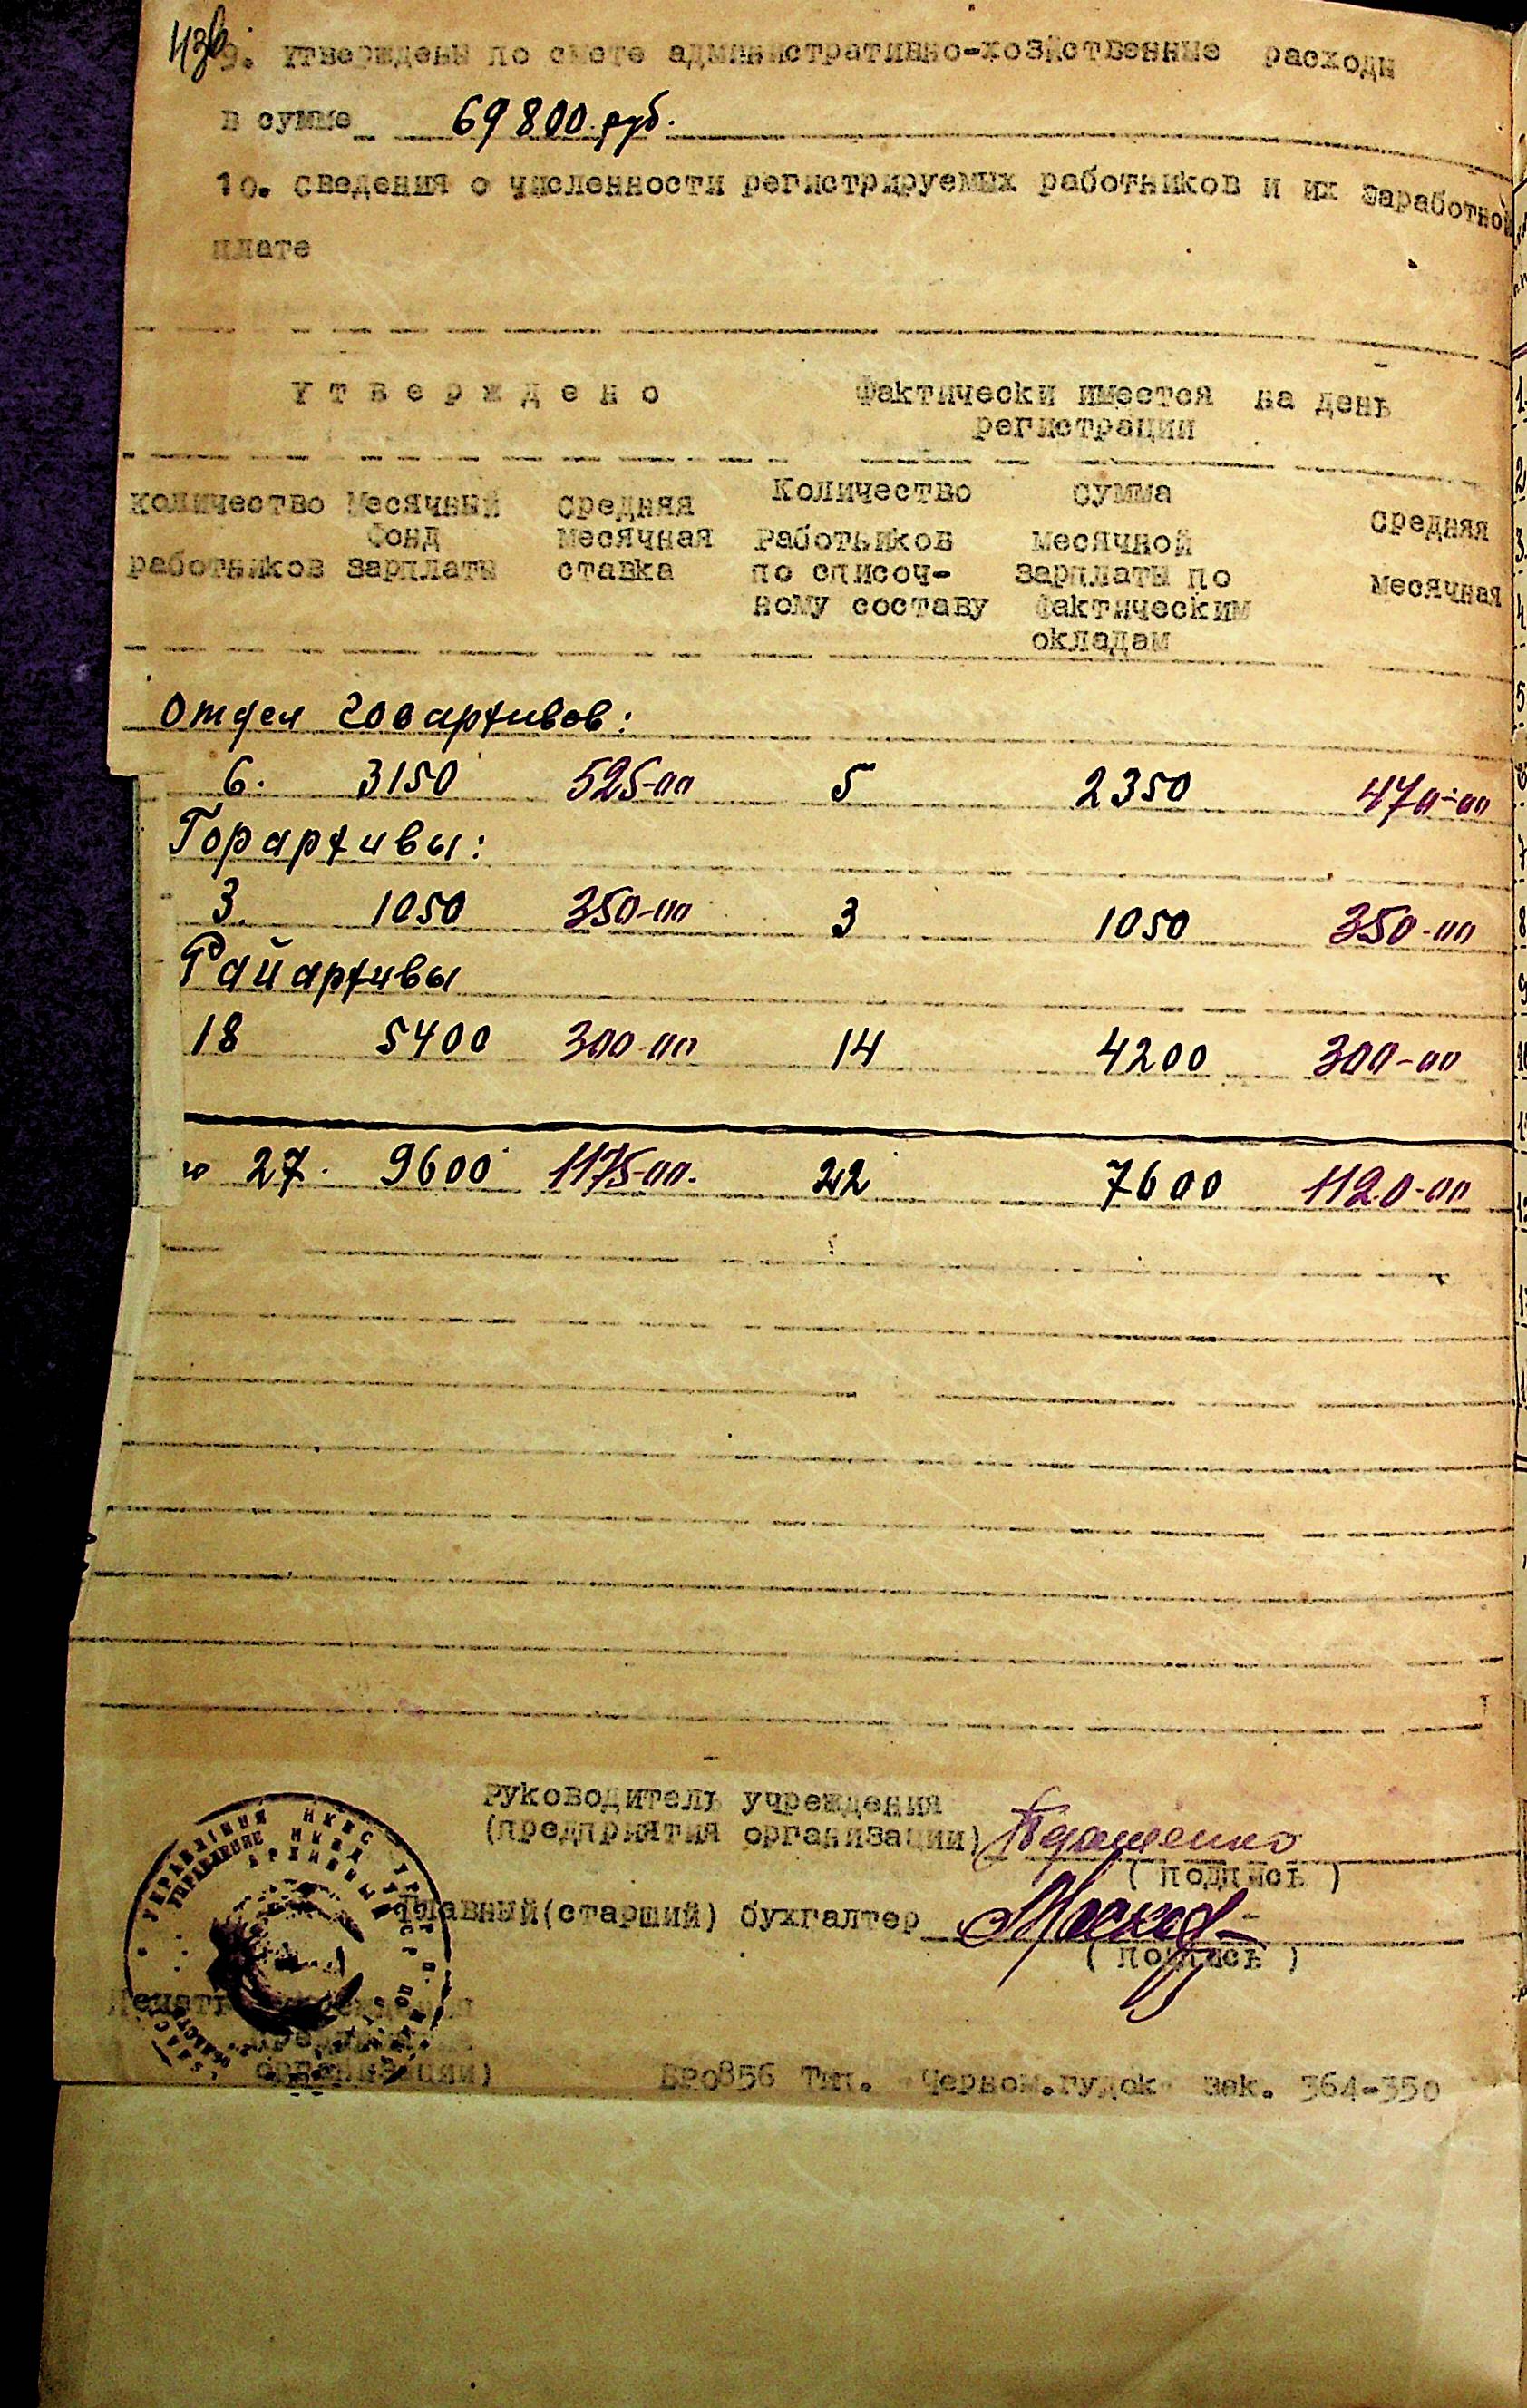 43б
9. Утверждены по смете административно-хозйственние расходы
в сумме 69 800. руб.
10. Сведения о численности регистрируемых работников и их заработной
плате
Утверждено Фактически имеется на день
регистрации
Количество Месячный Средняя Количество Сумма Средняя
фонд месячная Работников месячной
работников зарплаты ставка по списоч- зарплаты по месячная
ному составу фактическим
окладам
Отдел госархивов:
6. 3150 525-00 5 2350 470-00
Горархивы:
3. 1050 350-00 3 1050 350-00
Райархивы
18 5400 300-00 14 4200 300-00
27. 9600 1175-00. 22 7600 1120-00
Руководитель учреждения
(предприятия организации)
( подпись )
Главный(старший) бухгалтер
( подпись )
УПРАВЛІННЯ НКВС УРСР
УПРАВЛЕНИЕ НКВД УССР
организации)
БР0856 Тип. Червон.гудок зак. 364-350